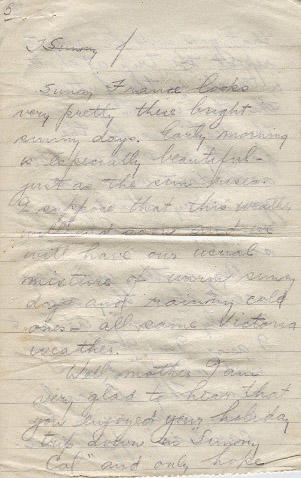 5
Sunny France looks
very pretty these bright
sunny days. Early morning
is especially beautiful -
just as the sun rises.
I suppose that this weather
will end soon and we
will have our usual
mixture of warm sunny
days and rainy cold
ones - all same Victoria
weather.
Well mother I am
very glad to hear that
you enjoyed your holiday
trip down in "Sunny
Cal" and only hope